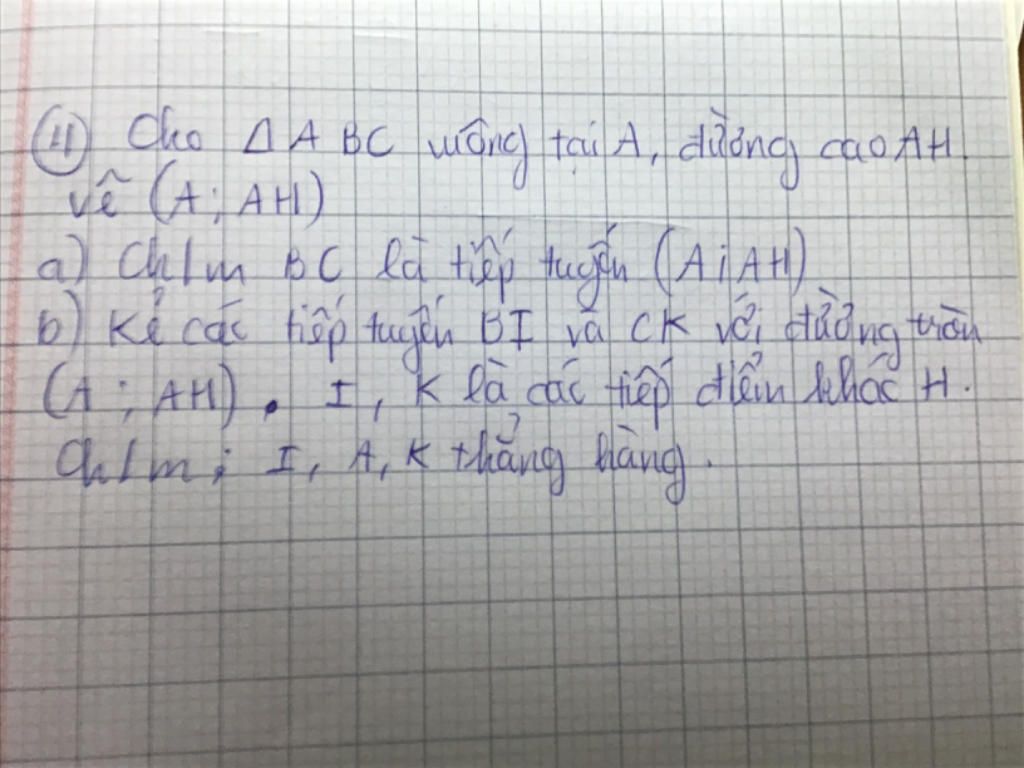 ④ Cho Δ ABC vuông tại A, đường cao AH.
vẽ (A; AH)
a) Ch/m BC là tiếp tuyến (A; AH)
b) Kẻ các tiếp tuyến BI và CK với đường tròn
(A; AH). I, K là các tiếp điểm khác H.
Ch/m: I, A, K thẳng hàng.